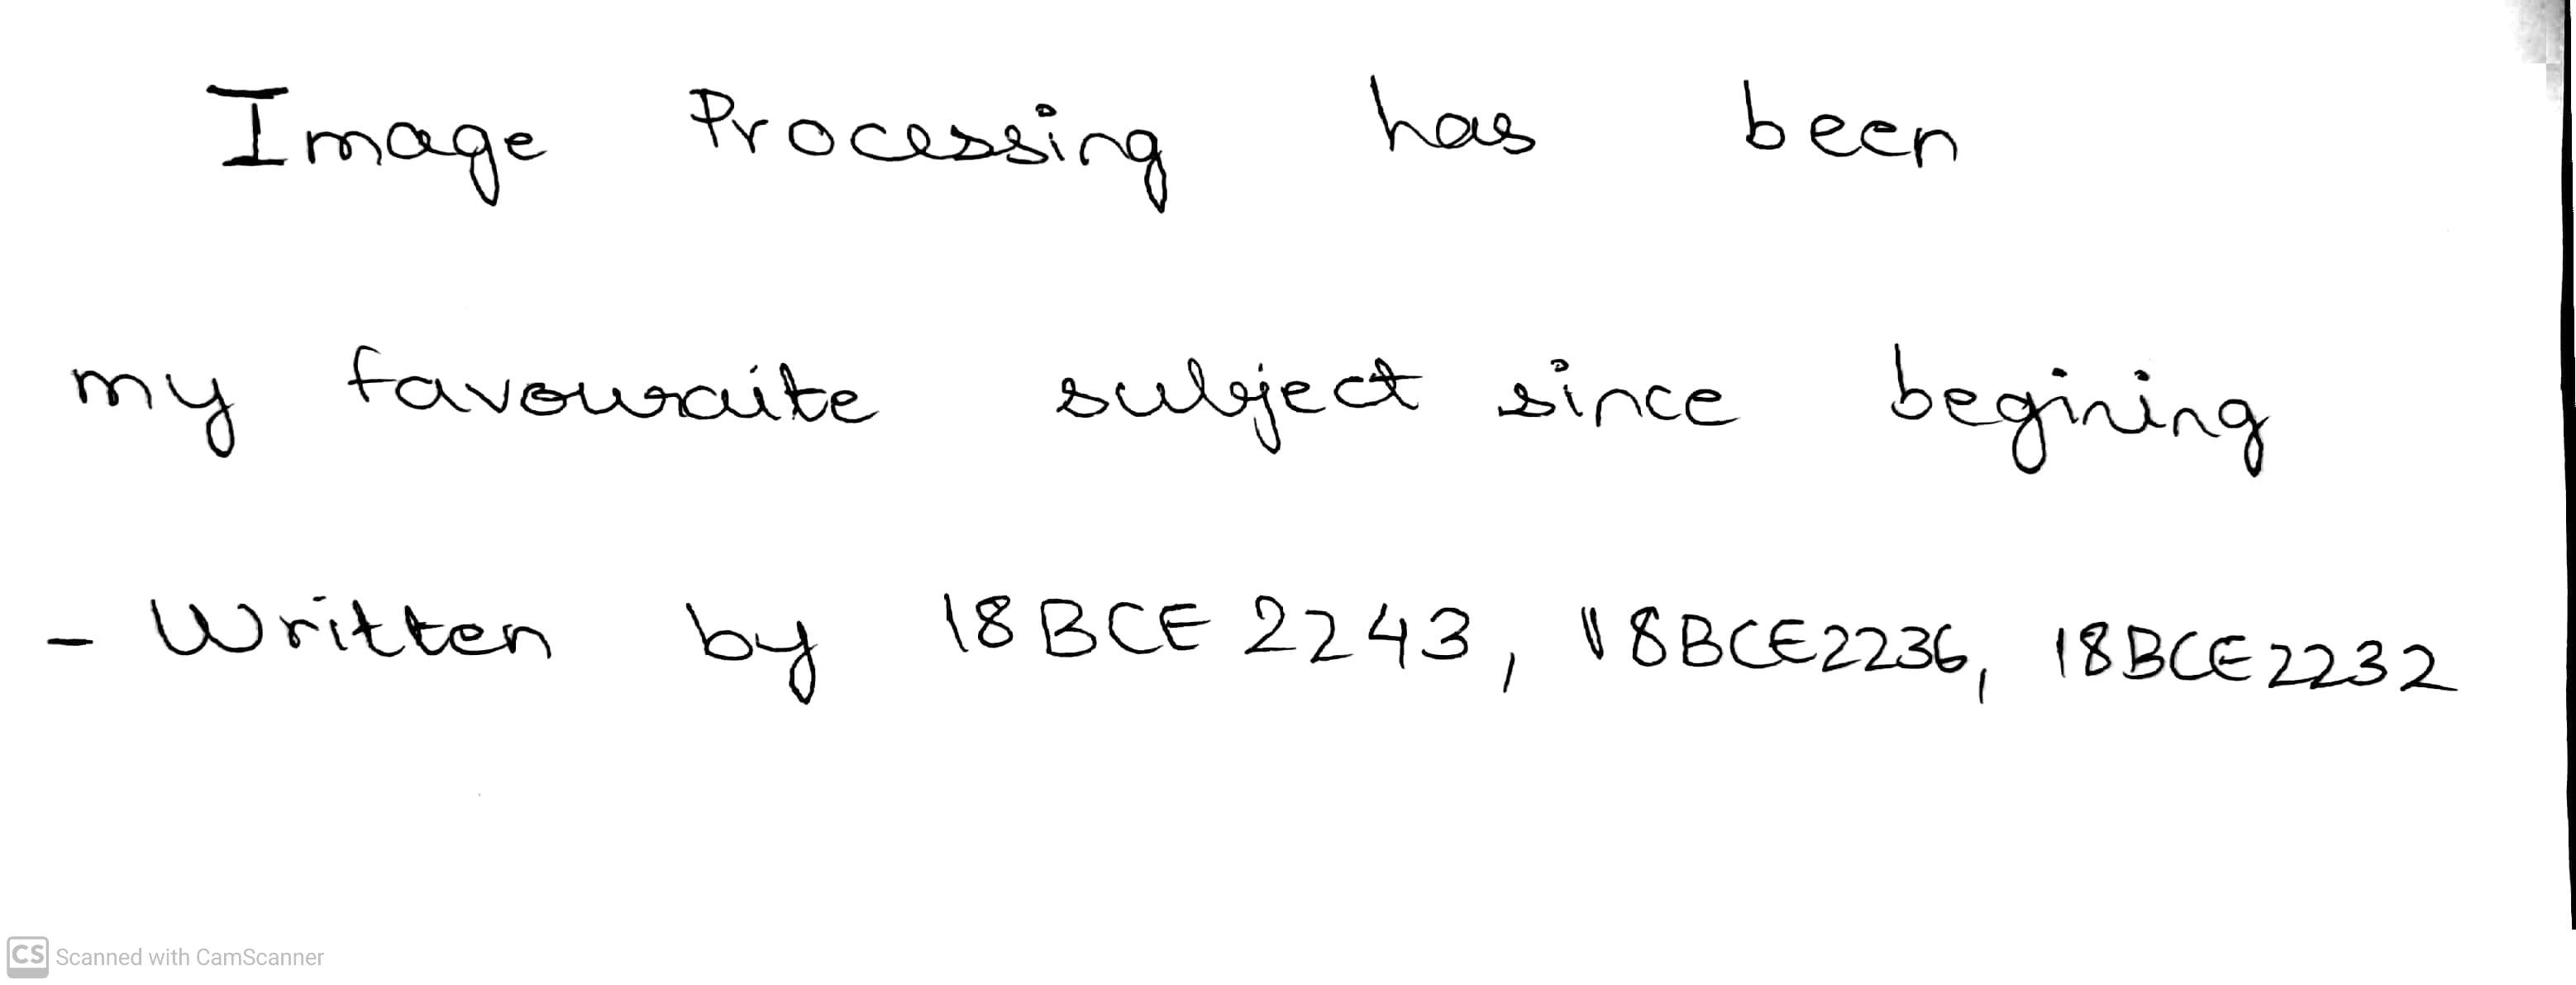 Image Processing has been
my favouraite subject since begining
- Written by 18BCE2243, 18BCE2236, 18BCE2232
CS Scanned with CamScanner